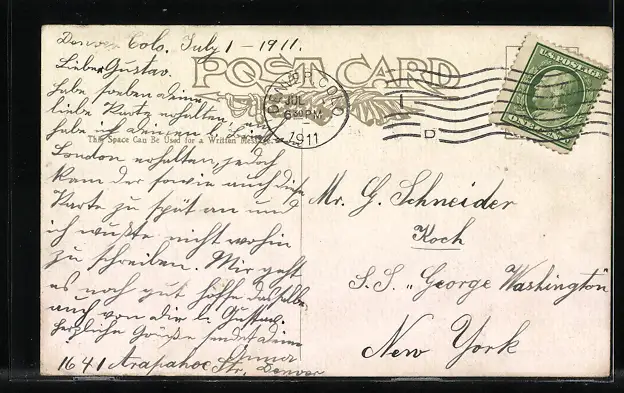 Denver Colo. July 1 - 1911.
Lieber Gustav.
Habe soeben deine
liebe Karte erhalten,
habe ich deinen l. Brief
London erhalten, jedoch
kam der sowie auch diese
Karte zu spät an und
ich wußte nicht wohin
zu schreiben. Mir geht
es noch gut hoffe dasselbe
auch von dir l. Gustav.
Herzliche Grüße sendet deine
Anna
1641 Arapahoe Str. Denver
POST CARD
This Space Can Be Used for a Written Message
DENVER, COLO.
JUL
1
6 30 PM
1911
D
U.S. POSTAGE
Mr. G. Schneider
Koch
S.S. „George Washington"
New York